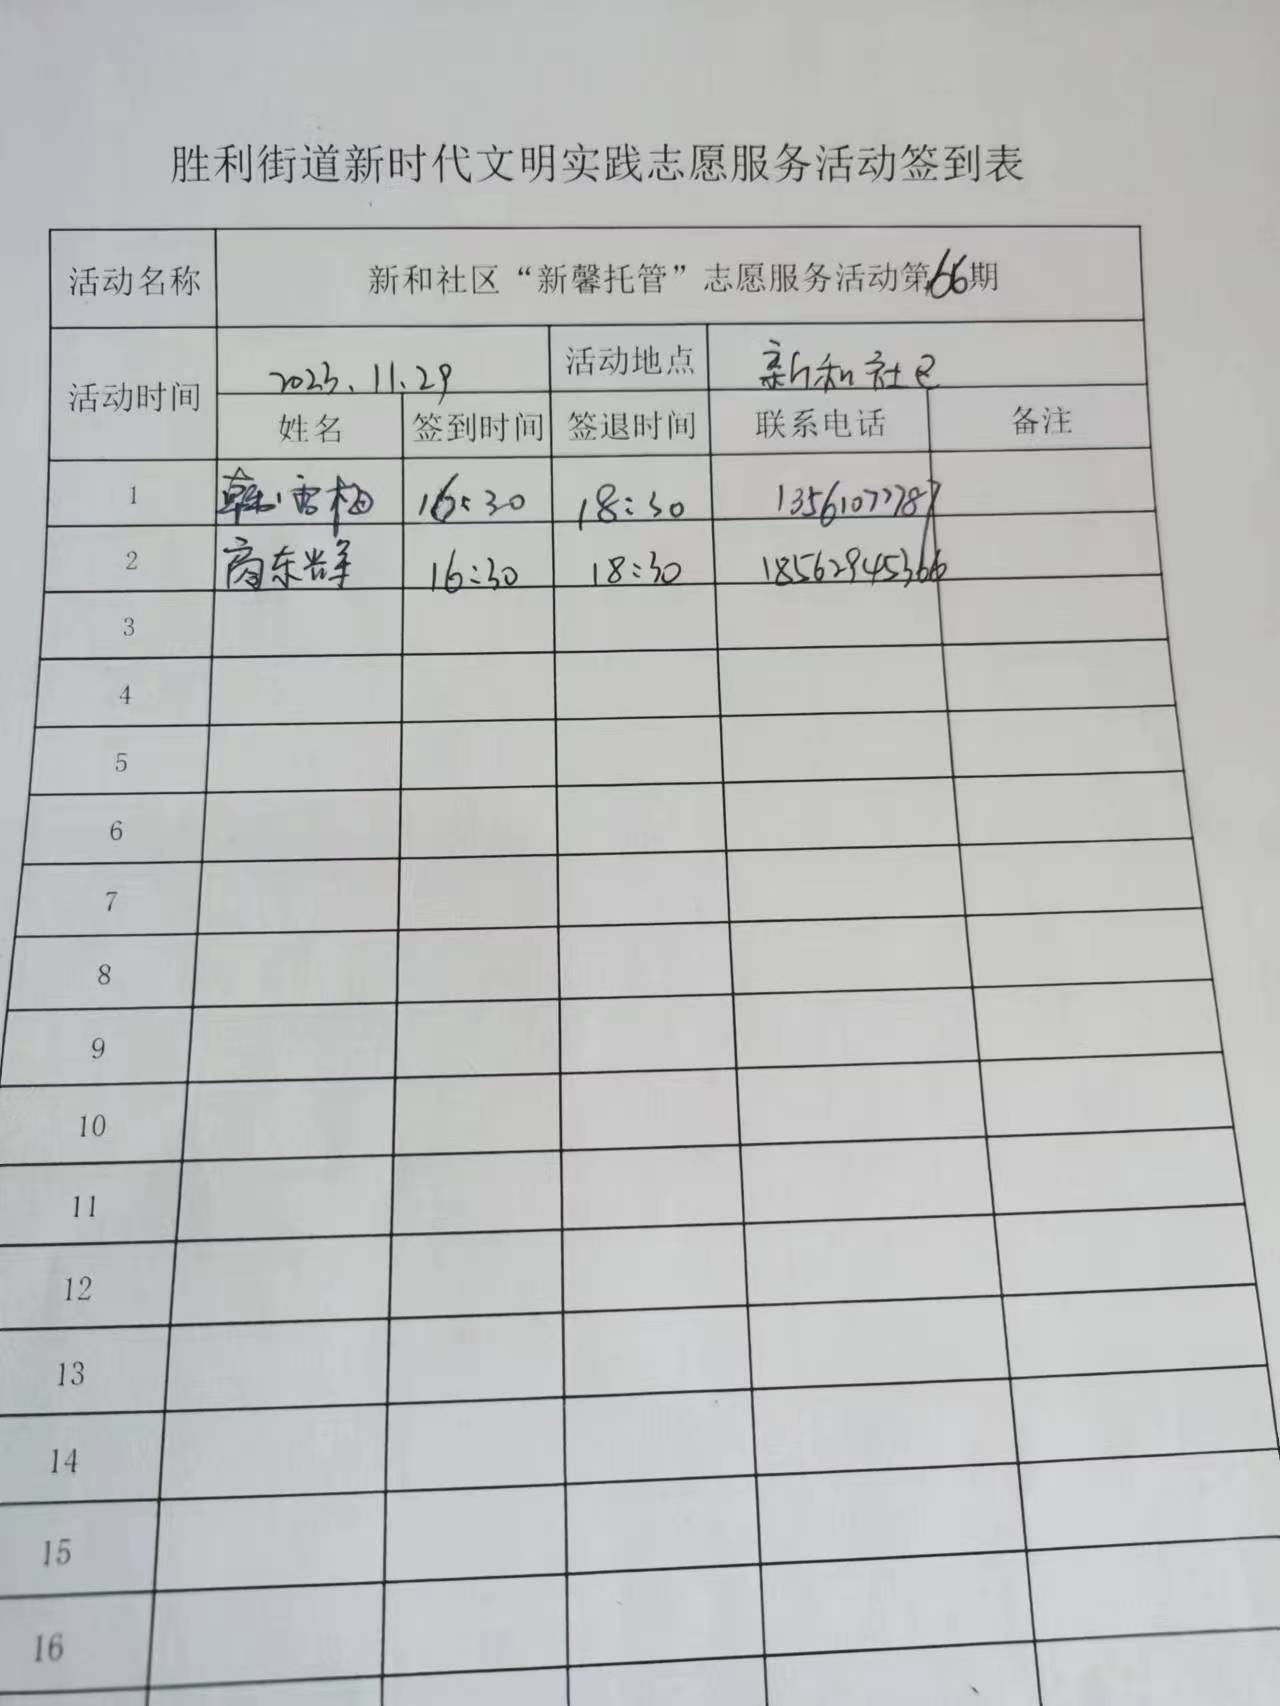 胜利街道新时代文明实践志愿服务活动签到表
活动名称 新和社区“新馨托管”志愿服务活动第66期
活动时间 2023.11.29 活动地点 新和社区
姓名 签到时间 签退时间 联系电话 备注
1 韩雪梅 16:30 18:30 13561077787
2 商东群 16:30 18:30 18562945366
3
4
5
6
7
8
9
10
11
12
13
14
15
16